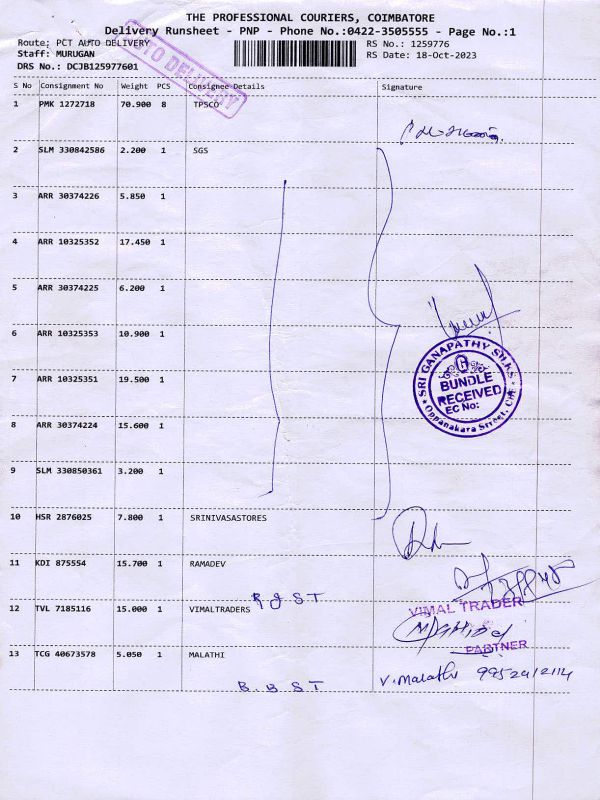 THE PROFESSIONAL COURIERS, COIMBATORE
Delivery Runsheet - PNP - Phone No.:0422-3505555 - Page No.:1
Route: PCT AUTO DELIVERY RS No.: 1259776
Staff: MURUGAN RS Date: 18-Oct-2023
DRS No.: DCJB125977601
AUTO DELIVERY
S No Consignment No Weight PCS Consignee Details Signature
1 PMK 1272718 70.900 8 TPSCO
2 SLM 330842586 2.200 1 SGS
3 ARR 30374226 5.850 1
4 ARR 10325352 17.450 1
5 ARR 30374225 6.200 1
6 ARR 10325353 10.900 1
SRI GANAPATHY SILKS
BUNDLE
RECEIVED
EC No:
Oppanakara Street, CBE
7 ARR 10325351 19.500 1
8 ARR 30374224 15.600 1
9 SLM 330850361 3.200 1
10 HSR 2876025 7.800 1 SRINIVASASTORES
11 KDI 875554 15.700 1 RAMADEV
R J S T
12 TVL 7185116 15.000 1 VIMALTRADERS
VIMAL TRADER
PARTNER
13 TCG 40673578 5.050 1 MALATHI
V. Malathi
B. B S T